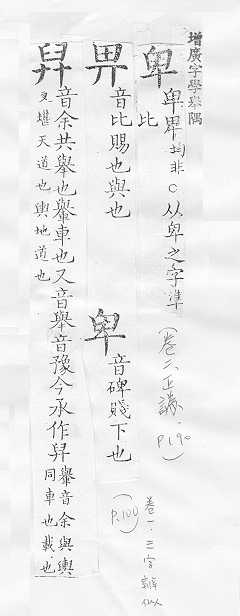 增廣字學舉隅
卑 卑畀均非从卑之字準 (卷二正譌. P.190)
比
畀 音比賜也與也
卑 音碑賤下也 (P.100) 卷一.三字辨似
舁 音余共舉也轝車也又音舉音豫今承作舁
轝音余與輿同車也載也
又堪天道也輿地道也